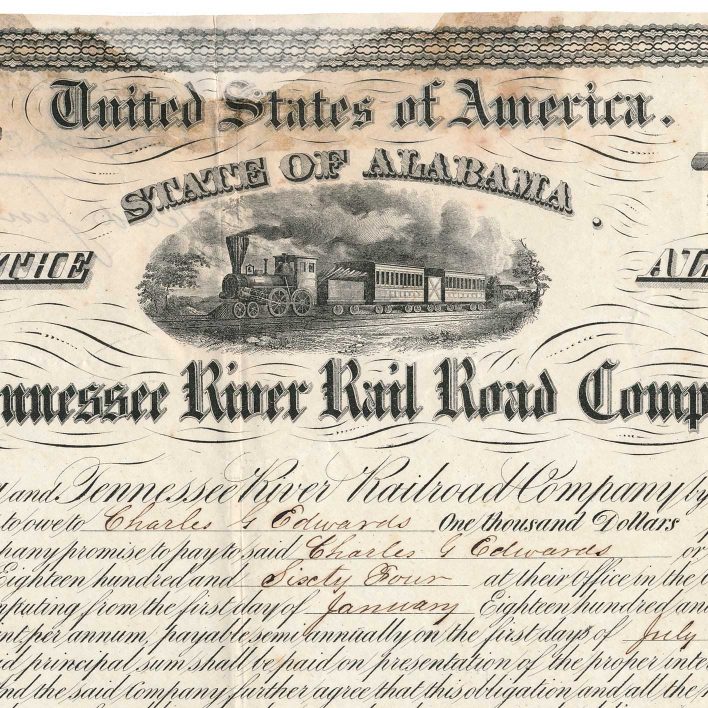 United States of America.
STATE OF ALABAMA
nnessee River Rail Road Comp
and Tennessee River Railroad Company by
to owe to Charles G Edwards One thousand Dollars
pany promise to pay to said Charles G Edwards or
Eighteen hundred and Sixty Four at their Office in the
mputing from the first day of January Eighteen hundred and
ent, per annum, payable semi annually on the first days of July
id principal sum shall be paid on presentation of the proper inter
And the said Company further agree that this obligation and all the